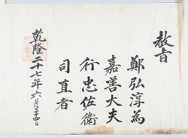 教旨
鄭弘淳為
嘉善大夫
行忠佐衛
司直者
乾隆二十七年六月二十四日